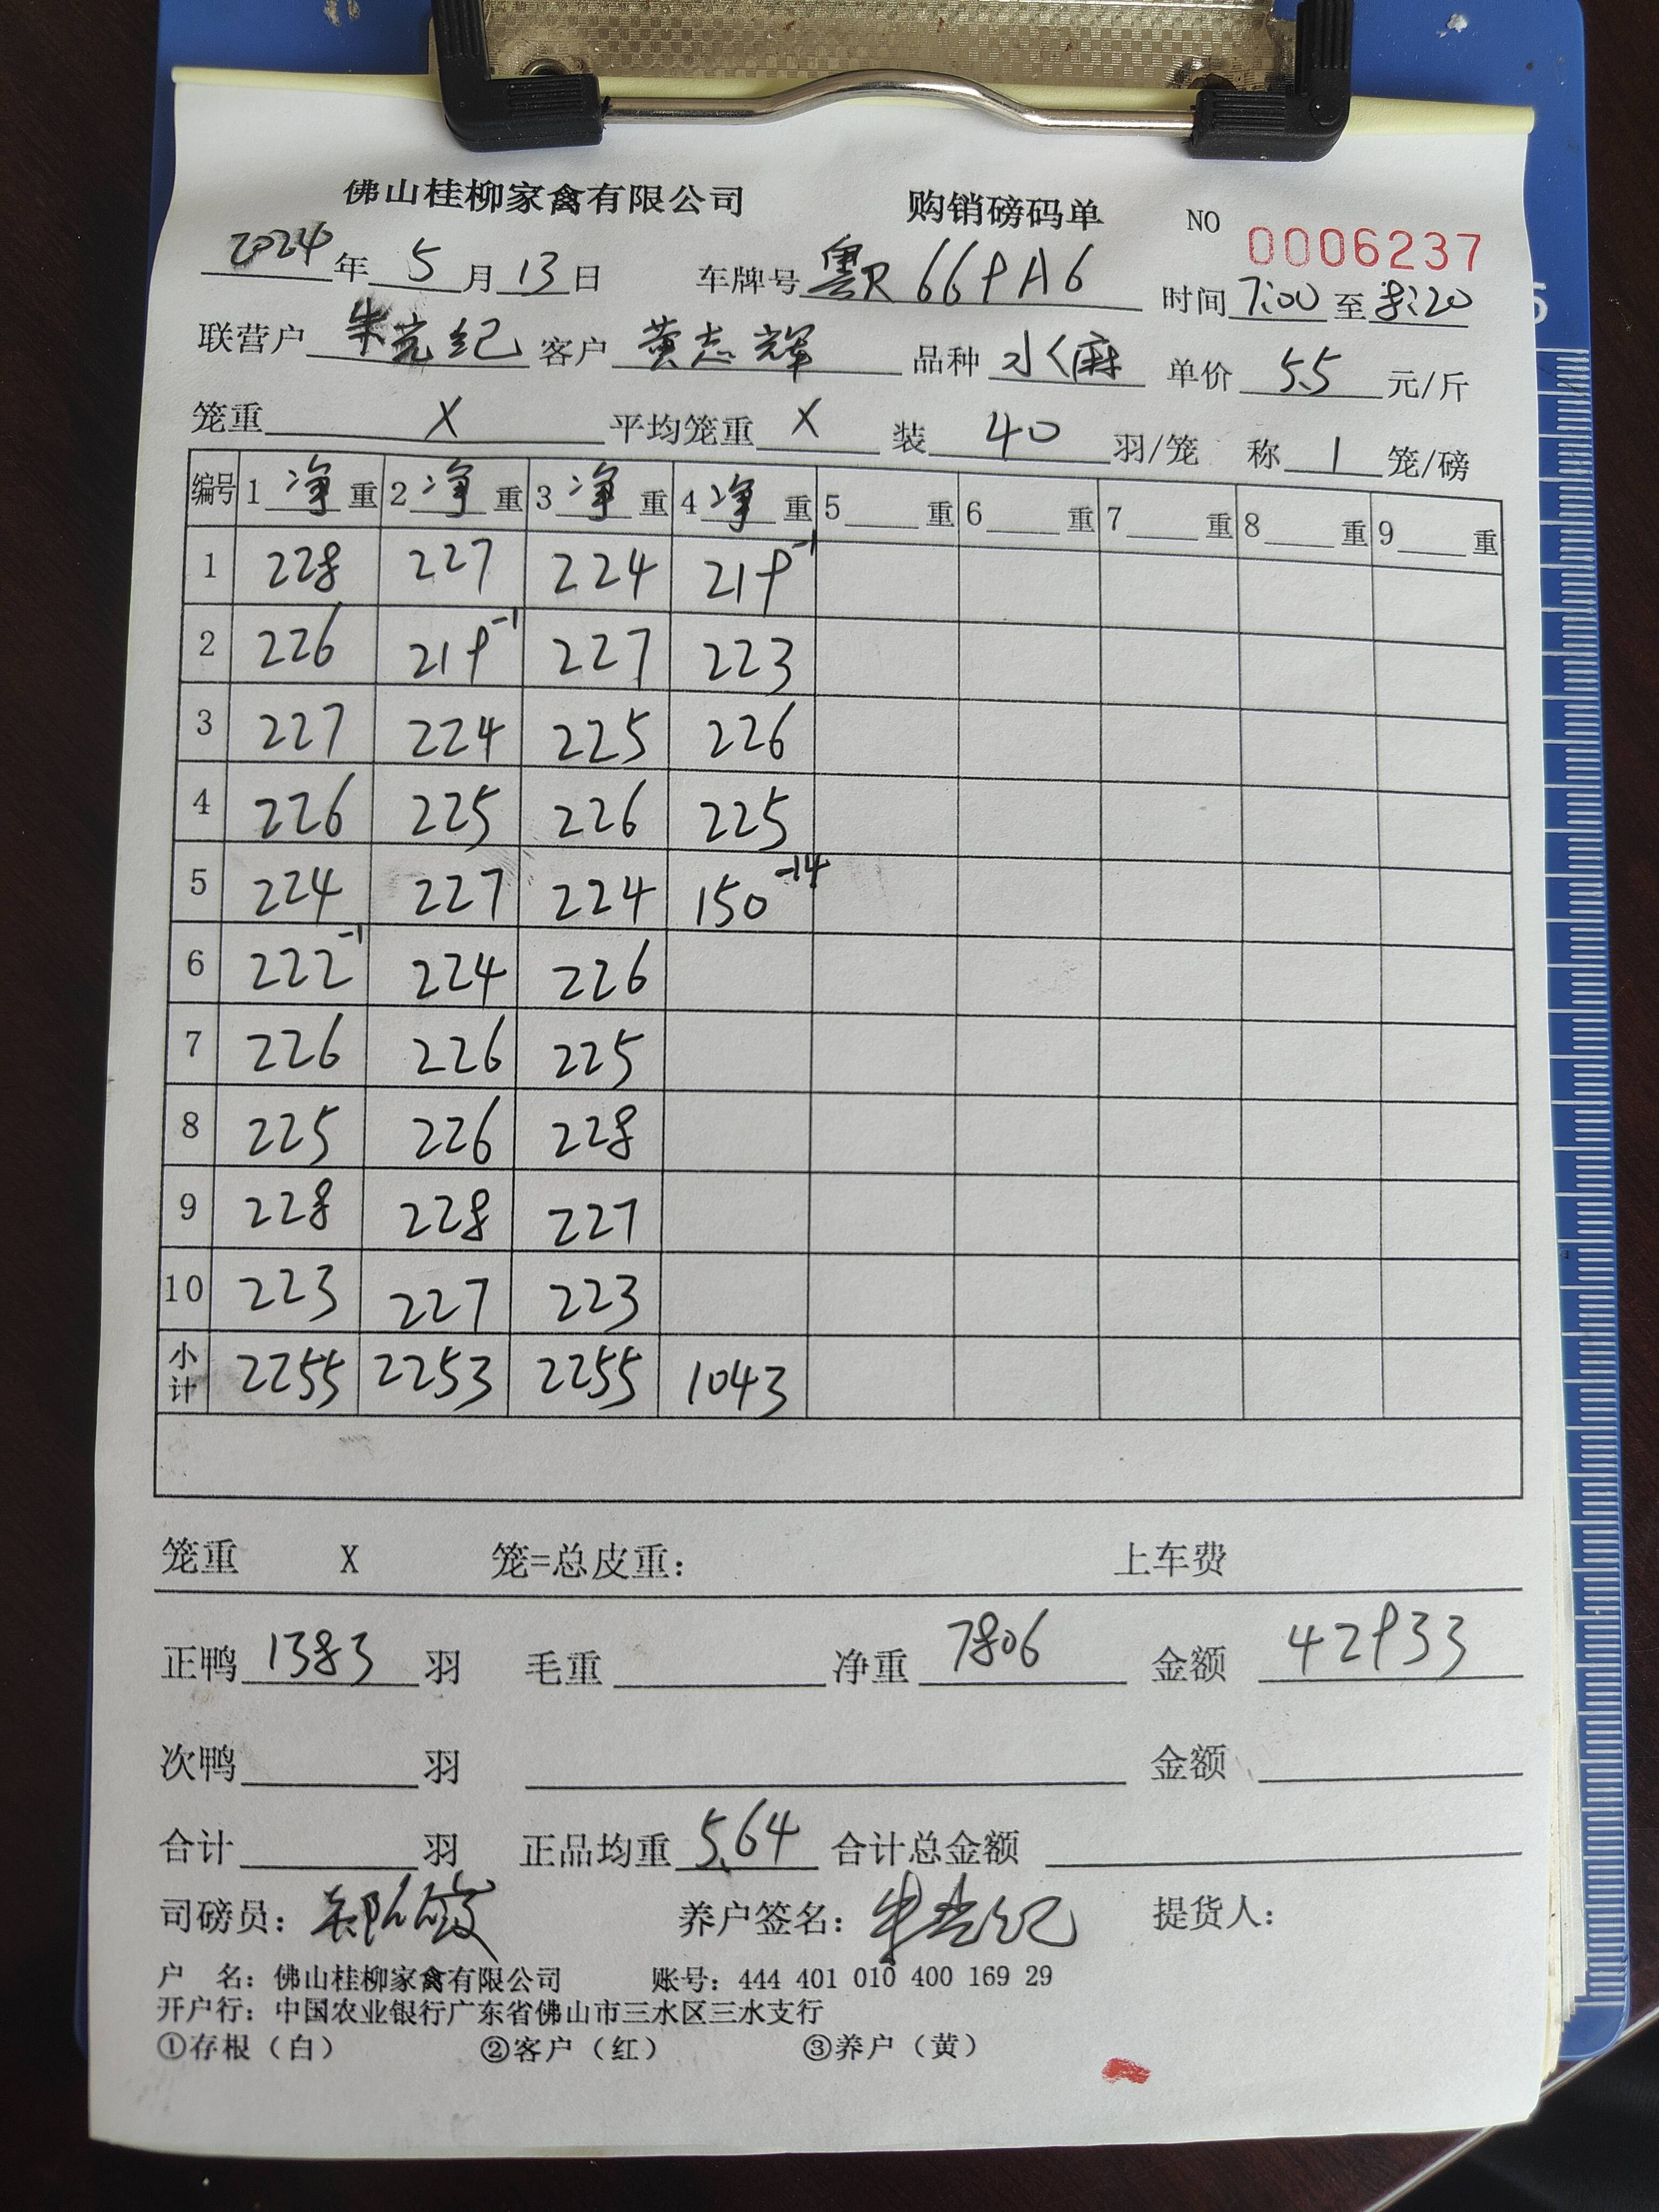 佛山桂柳家禽有限公司 购销磅码单 NO 0006237
2024年 5月13日 车牌号 粤R 669A6 时间 7:00 至 8:20
联营户 朱完纪 客户 黄志辉 品种 水麻 单价 5.5 元/斤
笼重 X 平均笼重 X 装 40 羽/笼 称 1 笼/磅
编号 1净重 2净重 3净重 4净重 5 重 6 重 7 重 8 重 9 重
1 228 227 224 219-1
2 226 219-1 227 223
3 227 224 225 226
4 226 225 226 225
5 224 227 224 150-14
6 222-1 224 226
7 226 226 225
8 225 226 228
9 228 228 227
10 223 227 223
小计 2255 2253 2255 1043
笼重 X 笼=总皮重: 上车费
正鸭 1383 羽 毛重 净重 7806 金额 42933
次鸭 羽 金额
合计 羽 正品均重 5.64 合计总金额
司磅员: 养户签名: 提货人:
户 名: 佛山桂柳家禽有限公司 账号: 444 401 010 400 169 29
开户行: 中国农业银行广东省佛山市三水区三水支行
①存根（白） ②客户（红） ③养户（黄）